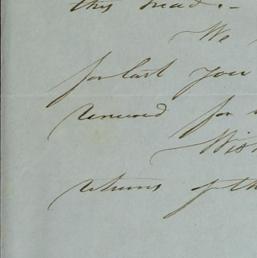 this head. –
We
for last year
renewed for
Wish
returns of th